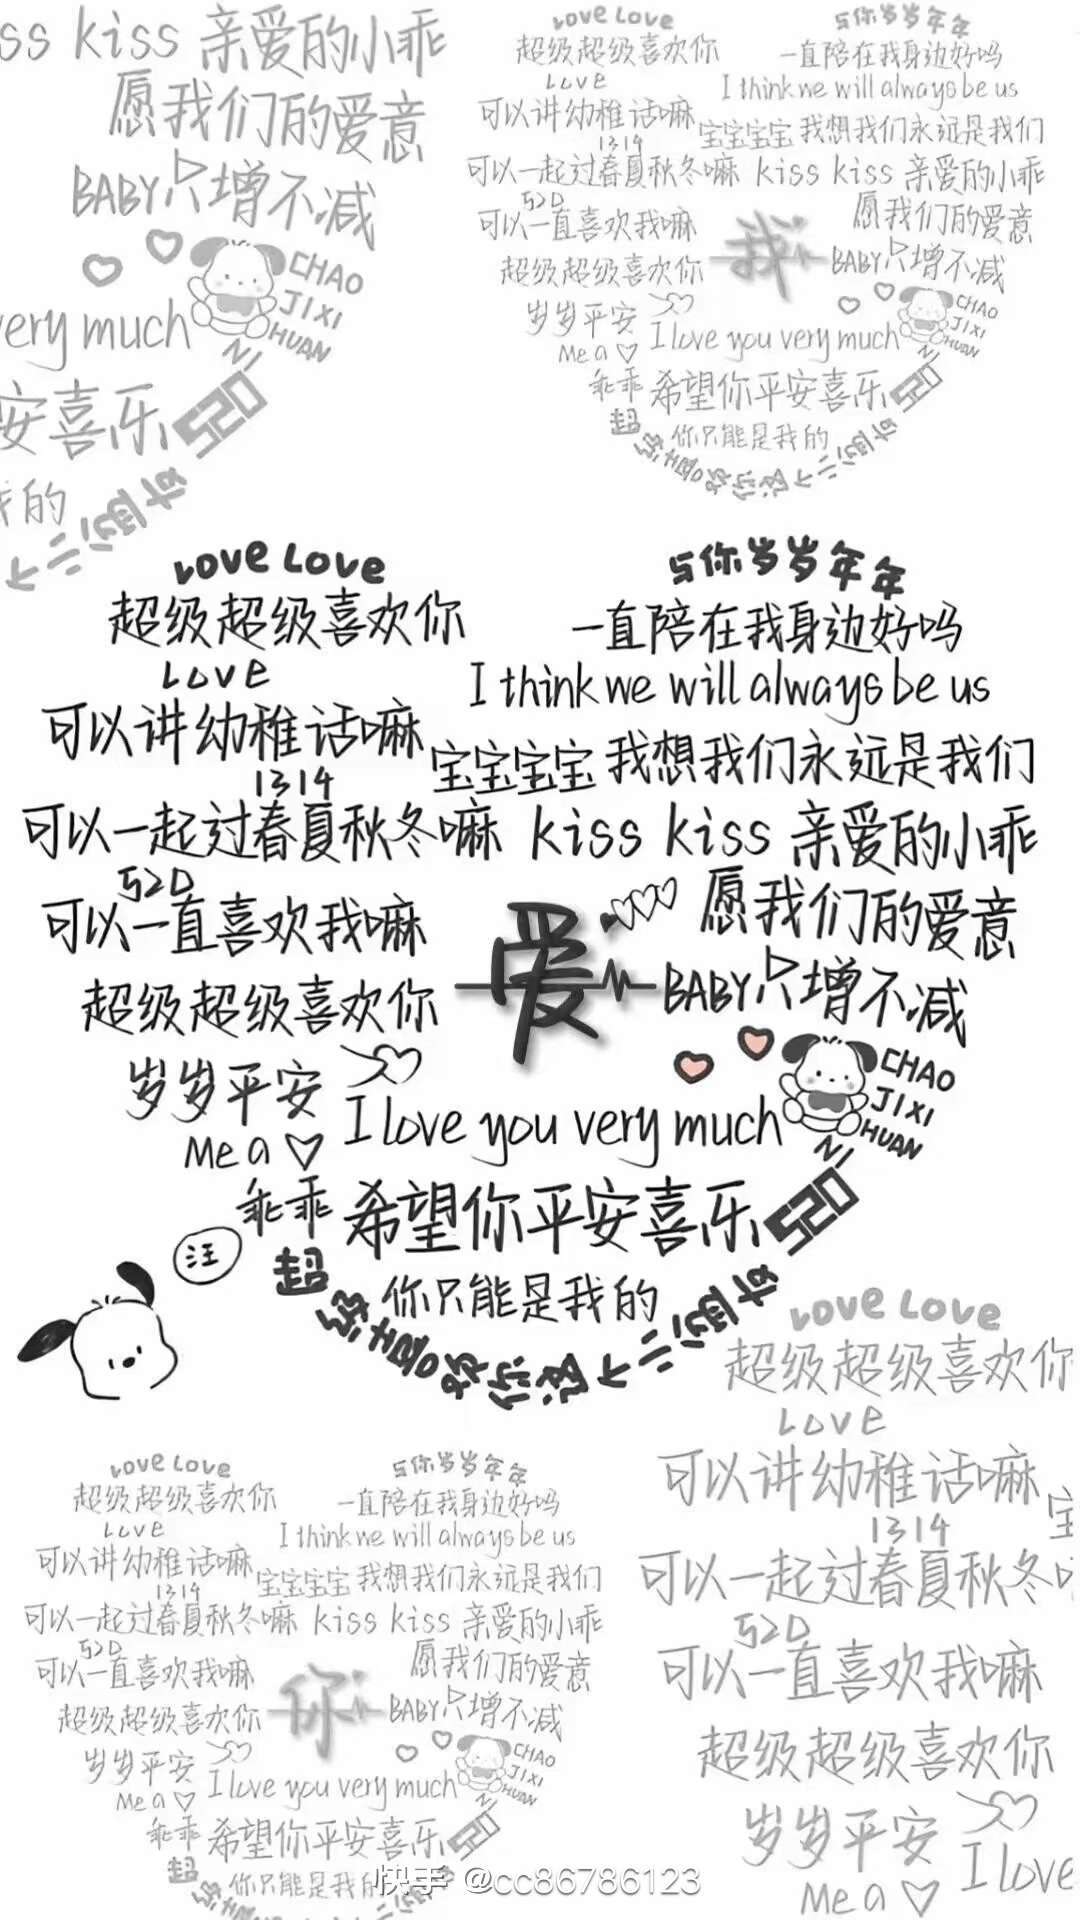 ss kiss 亲爱的小乖
愿我们的爱意
BABY只增不减
CHAO
JIXI
HUAN
NI
very much
安喜乐 520
我的
个二八月的
LOVE LOVE
与你岁岁年年
超级超级喜欢你
一直陪在我身边好吗
LOVE
I think we will always be us
可以讲幼稚话嘛
宝宝宝宝 我想我们永远是我们
1314
可以一起过春夏秋冬嘛 kiss kiss 亲爱的小乖
520
愿我们的爱意
可以一直喜欢我嘛
我
BABY只增不减
超级超级喜欢你
CHAO
JIXI
HUAN
NI
岁岁平安
I love you very much
Me a
乖乖 希望你平安喜乐 520
你只能是我的
超级喜欢你这个
LOVE LOVE
与你岁岁年年
超级超级喜欢你
一直陪在我身边好吗
LOVE
I think we will always be us
可以讲幼稚话嘛
宝宝宝宝 我想我们永远是我们
1314
可以一起过春夏秋冬嘛 kiss kiss 亲爱的小乖
520
愿我们的爱意
可以一直喜欢我嘛
爱
BABY只增不减
超级超级喜欢你
CHAO
JIXI
HUAN
NI
岁岁平安
I love you very much
Me a
乖乖 希望你平安喜乐 520
汪
你只能是我的
超级喜欢你这个
LOVE LOVE
超级超级喜欢你
LOVE
可以讲幼稚话嘛
1314
可以一起过春夏秋冬
520
可以一直喜欢我嘛
超级超级喜欢你
岁岁平安
I love
Me a
LOVE LOVE
与你岁岁年年
超级超级喜欢你
一直陪在我身边好吗
LOVE
I think we will always be us
可以讲幼稚话嘛
宝宝宝宝 我想我们永远是我们
1314
可以一起过春夏秋冬嘛 kiss kiss 亲爱的小乖
520
愿我们的爱意
可以一直喜欢我嘛
你
BABY只增不减
超级超级喜欢你
CHAO
JIXI
HUAN
NI
岁岁平安
I love you very much
Me a
乖乖 希望你平安喜乐 520
你只能是我的
超
快手 @cc86786123